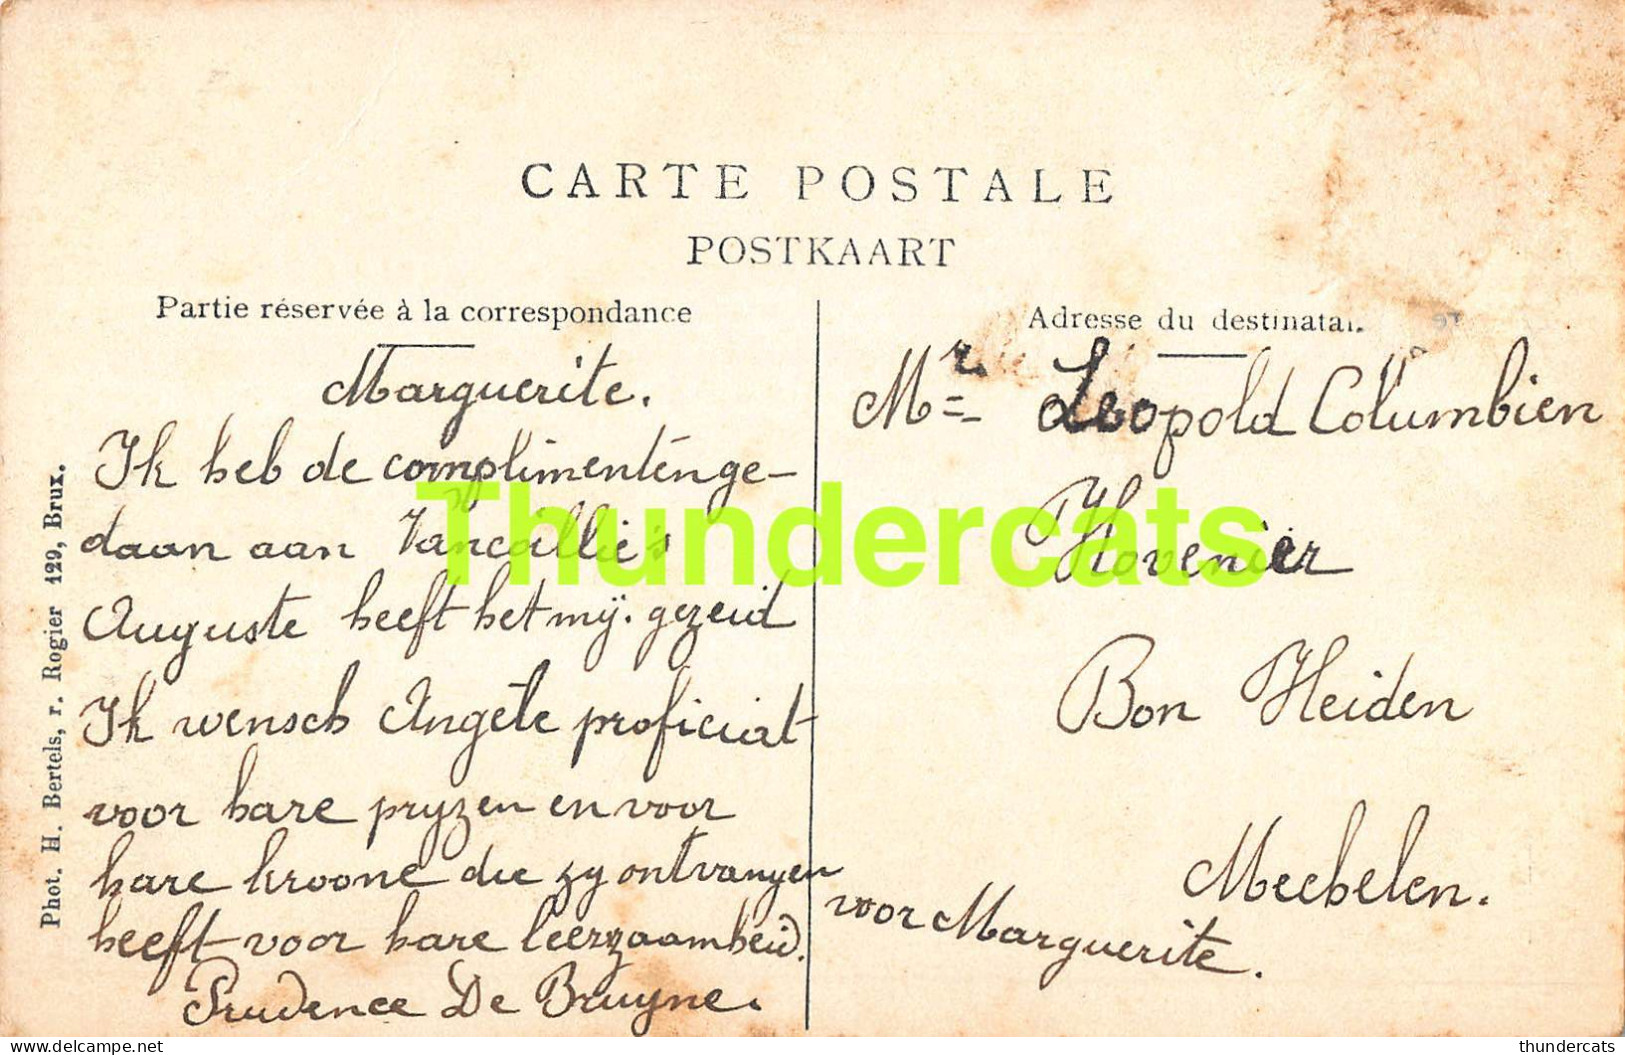 CARTE POSTALE
POSTKAART
Partie réservée à la correspondance
Marguerite.
Ik heb de complimenten ge-
daan aan Vancallie's
Auguste heeft het mij. gezeid
Ik wensch Angéle proficiat
voor hare pryzen en voor
hare kroone die zy ontvangen
heeft voor hare leerzaamheid.
Prudence De Bruyne.
Adresse du destinatai.
Mr. Leopold Columbien
Hovenier
Bon Heiden
Mechelen.
voor Marguerite.
Phot. H. Bertels, r. Rogier 129, Brux.
Thundercats
DELCAMPE.NET
thundercats